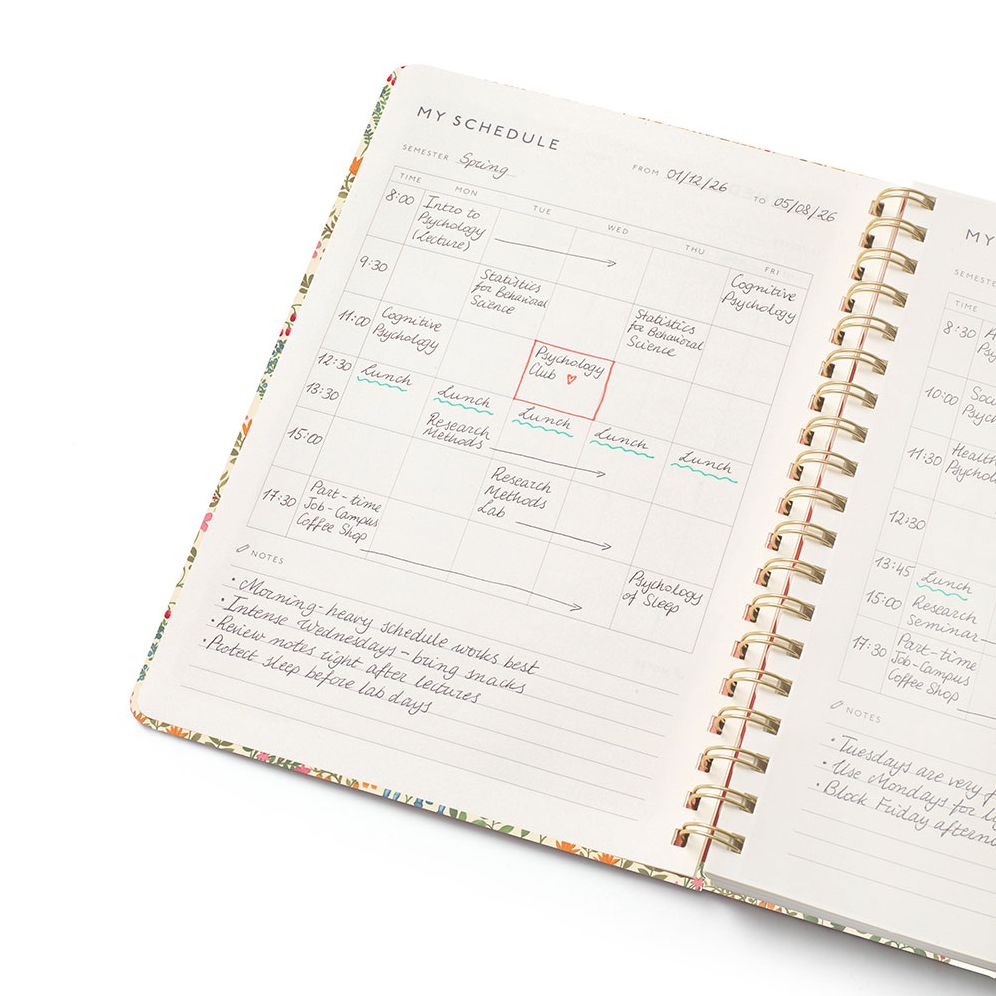 MY SCHEDULE
SEMESTER Spring
FROM 01/12/26 TO 05/08/26
TIME MON TUE WED THU FRI
8:00
Intro to
Psychology
(Lecture)
9:30
Statistics
for Behavioral
Science
Statistics
for Behavioral
Science
Cognitive
Psychology
11:00
Cognitive
Psychology
Psychology
Club
12:30
Lunch
Lunch
Lunch
Lunch
Lunch
13:30
Research
Methods
15:00
Research
Methods
Lab
17:30
Part-time
Job-Campus
Coffee Shop
Psychology
of Sleep
NOTES
• Morning-heavy schedule works best
• Intense Wednesdays - bring snacks
• Review notes right after lectures
• Protect sleep before lab days
MY
SEMES
TIME
8:30
10:00
Soci
Psych
11:30
Health
Psycholo
12:30
13:45
Lunch
15:00
Research
Seminar
17:30
Part-time
Job-Campus
Coffee Shop
NOTES
• Tuesdays are very
• Use Mondays for
• Block Friday afterno